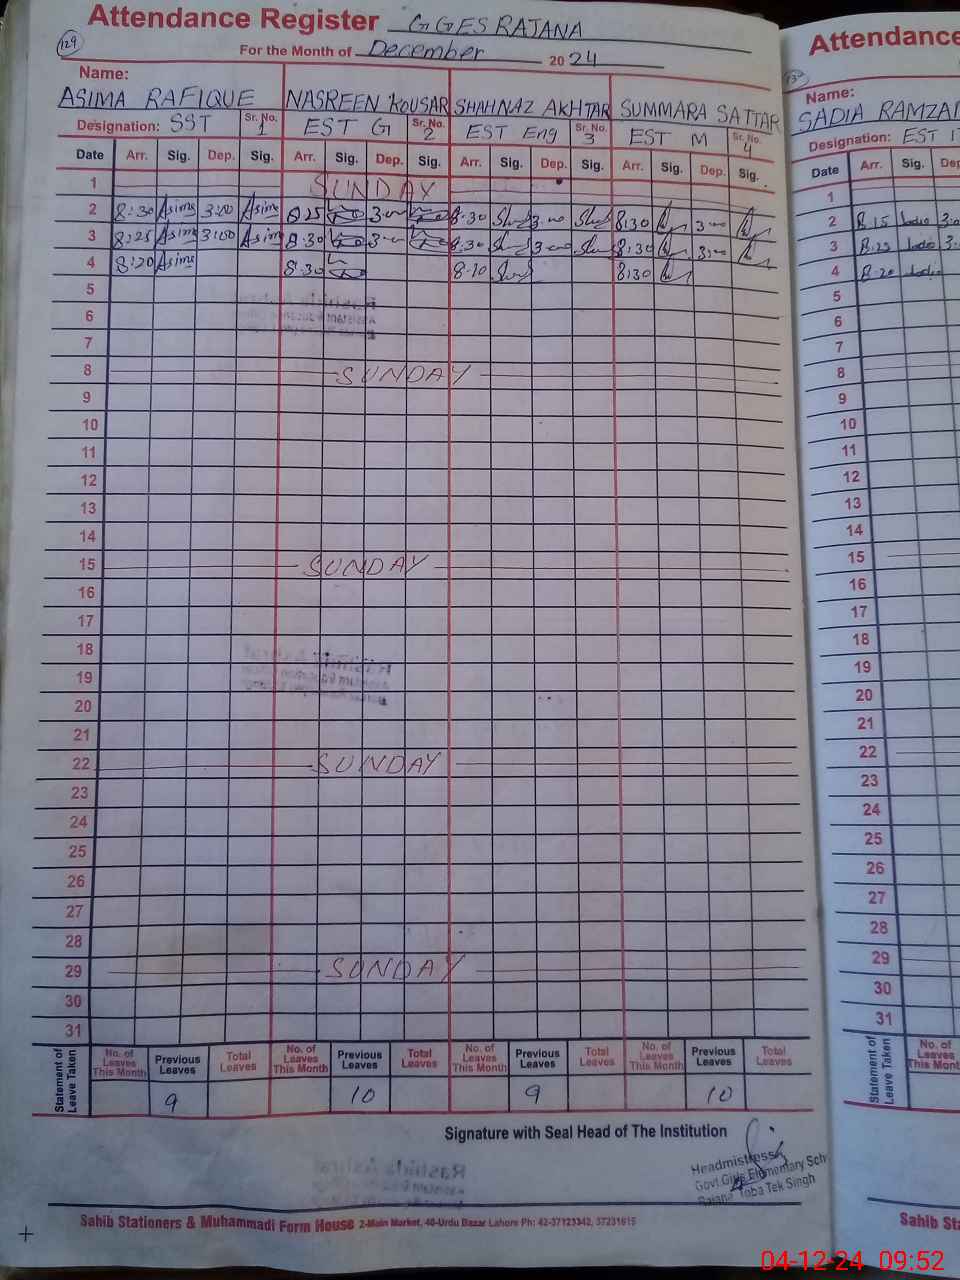 Attendance Register GGES RAJANA
129
For the Month of December 2024
Name:
ASIMA RAFIQUE NASREEN KOUSAR SHAHNAZ AKHTAR SUMMARA SATTAR
Designation: SST Sr. No. 1 EST G Sr. No. 2 EST Eng Sr. No. 3 EST M Sr. No. 4
Date Arr. Sig. Dep. Sig. Arr. Sig. Dep. Sig. Arr. Sig. Dep. Sig. Arr. Sig. Dep. Sig.
1 SUNDAY
2 8:30 Asima 3:00 Asima 8.25 3:00 8.30 3:00 8:30 3:00
3 8:25 Asima 3:00 Asima 8.30 3:00 8.30 3:00 8:30 3:00
4 8:20 Asima 8.30 8.20 8:30
5
6
7
8 SUNDAY
9
10
11
12
13
14
15 SUNDAY
16
17
18
19
20
21
22 SUNDAY
23
24
25
26
27
28
29 SUNDAY
30
31
Statement of Leave Taken
No. of Leaves This Month Previous Leaves Total Leaves No. of Leaves This Month Previous Leaves Total Leaves No. of Leaves This Month Previous Leaves Total Leaves No. of Leaves This Month Previous Leaves Total Leaves
9 10 9 10
Signature with Seal Head of The Institution
Headmistress
Govt. Girls Elementary Sch
Rajana Toba Tek Singh
Sahib Stationers & Muhammadi Form House 2-Main Market, 40-Urdu Bazar Lahore Ph: 42-37123342, 37231615
Attendance
Name:
SADIA RAMZA
Designation: EST
Date Arr. Sig. De
1
2 8.15 3:0
3 8.25 3:
4 8.20
5
6
7
8
9
10
11
12
13
14
15
16
17
18
19
20
21
22
23
24
25
26
27
28
29
30
31
Statement of Leave Taken
No. of Leaves This Mont
Sahib Sta
04-12-24 09:52